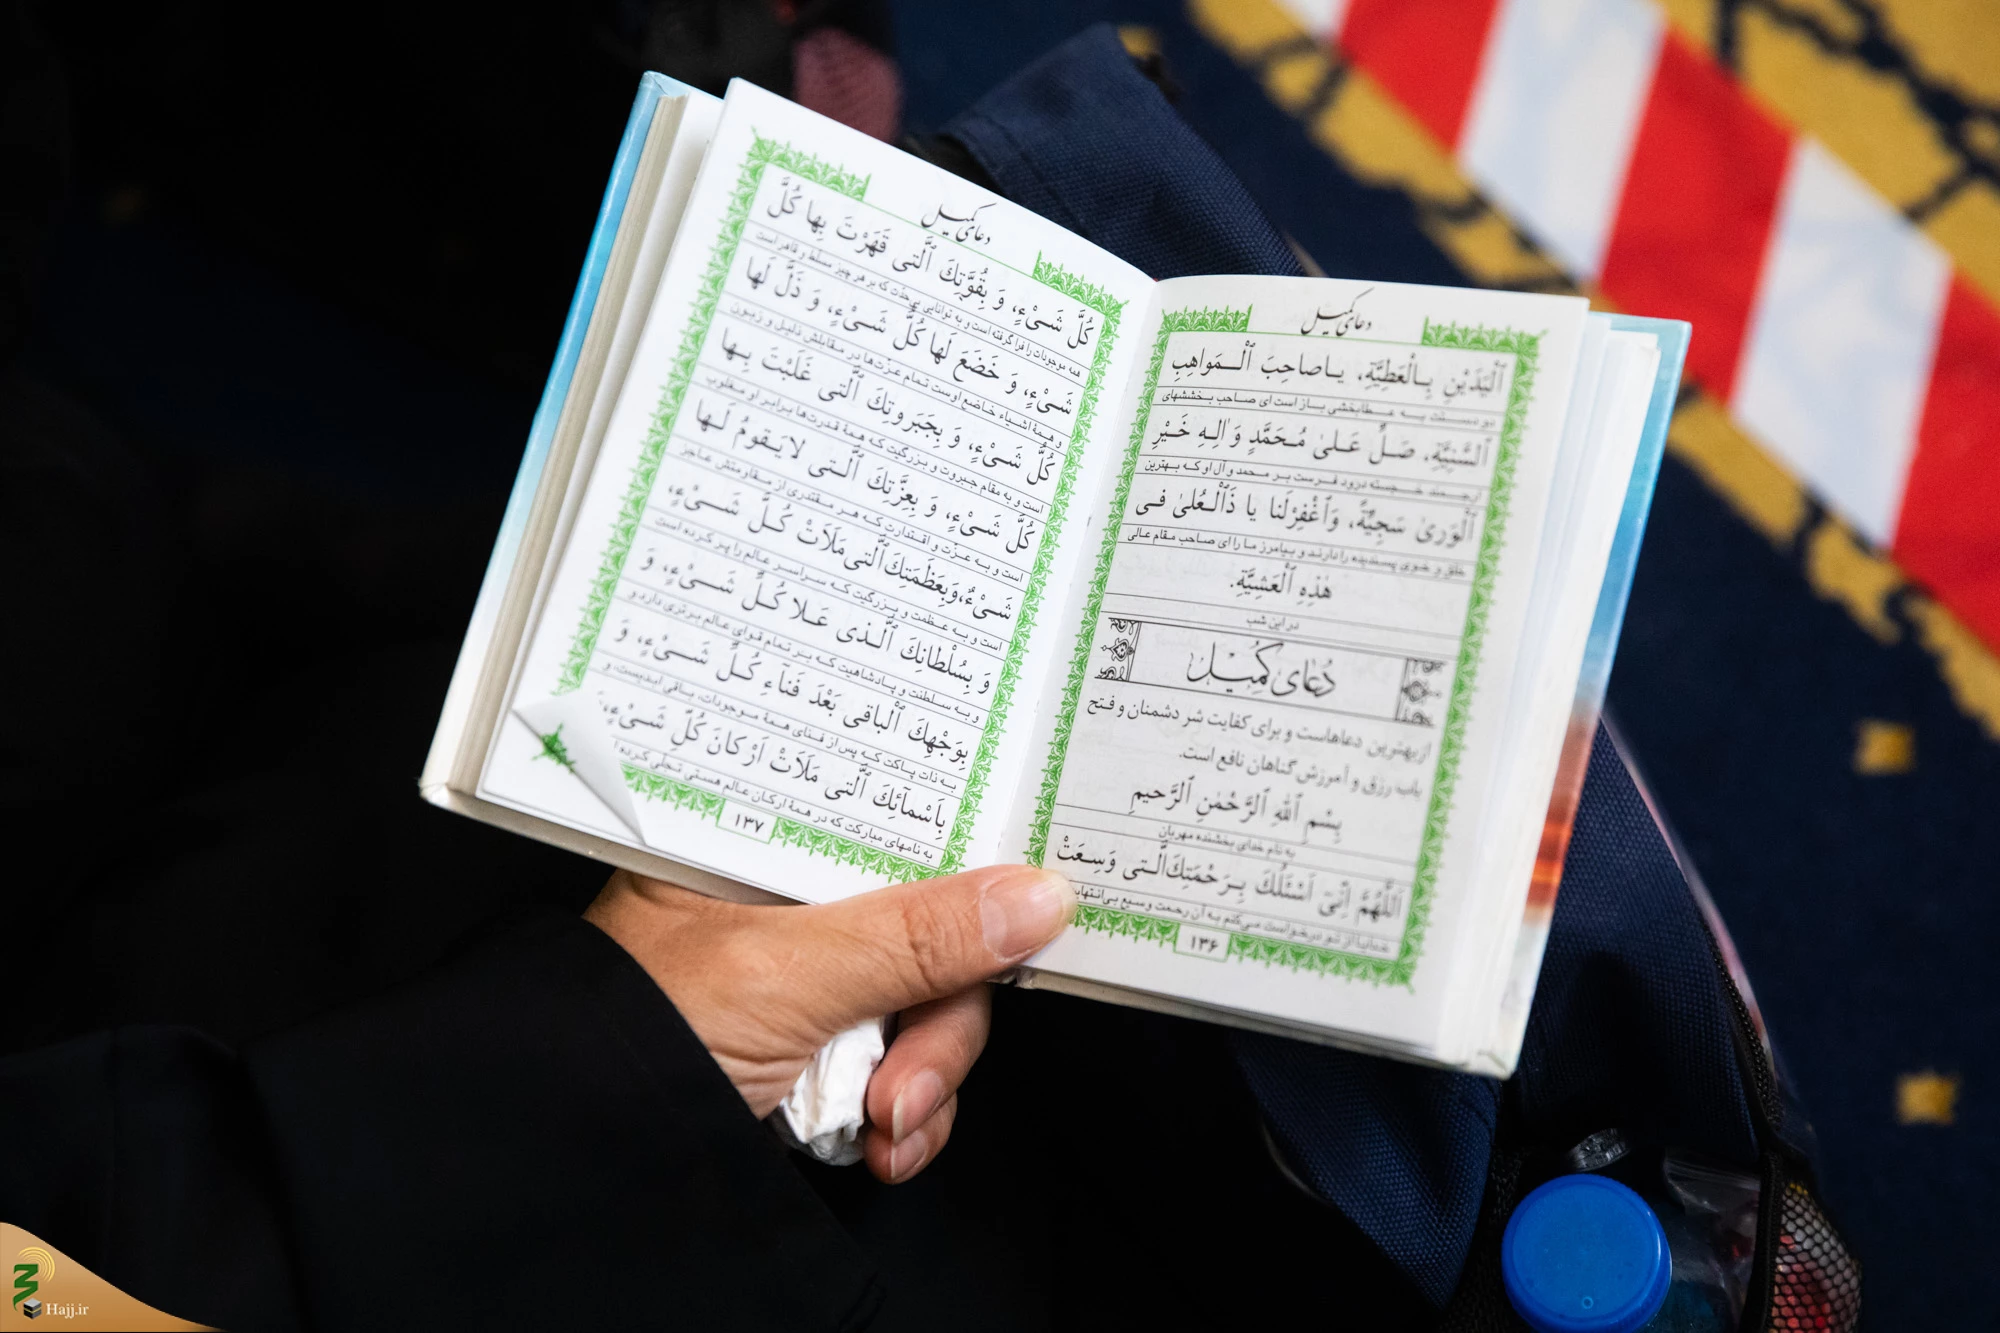 دعای کمیل
اَلْيَدَيْنِ بِالْعَطِيَّةِ، يا صاحِبَ الْمَواهِبِ
دو دستت به عطابخشی باز است ای صاحب بخششهای
السَّنِيَّةِ، صَلِّ عَلیٰ مُحَمَّدٍ وَ اٰلِهِ خَيْرِ
ارجمند خجسته درود فرست بر محمد و آل او که بهترین
الْوَریٰ سَجِيَّةً، وَاغْفِرْلَنا يا ذَاالْعُلیٰ فی
خلق و خوی پسندیده را دارند و بیامرز ما را ای صاحب مقام عالی
هٰذِهِ الْعَشِيَّةِ.
در این شب
دُعای کُمَیْل
از بهترین دعاهاست و برای کفایت شر دشمنان و فتح
باب رزق و آمرزش گناهان نافع است.
بِسْمِ اللّٰهِ الرَّحْمٰنِ الرَّحيمِ
به نام خدای بخشنده مهربان
اَللّٰهُمَّ اِنّیٓ اَسْئَلُكَ بِرَحْمَتِكَ الَّتی وَسِعَتْ
خدایا از تو درخواست می‌کنم به آن رحمت وسیع بی‌انتهایت
۱۳۶
دعای کمیل
كُلَّ شَیْءٍ، وَ بِقُوَّتِكَ الَّتی قَهَرْتَ بِها كُلَّ
همه موجودات را فرا گرفته است و به توانایی بی‌حدّت که بر هر چیز مسلط و قاهر است
شَیْءٍ، وَ خَضَعَ لَها كُلُّ شَیْءٍ، وَ ذَلَّ لَها
و همهٔ اشیاء خاضع اوست تمام عزّت‌ها در مقابلش ذلیل و زبون
كُلُّ شَیْءٍ، وَ بِجَبَرُوتِكَ الَّتی غَلَبْتَ بِها
است و به مقام جبروت و بزرگیت که همهٔ قدرت‌ها برابر او مغلوب
كُلَّ شَیْءٍ، وَ بِعِزَّتِكَ الَّتی لايَقومُ لَها
است و به عزّت و اقتدارت که هر مقتدری از مقاومتش عاجز
شَیْءٌ، وَ بِعَظَمَتِكَ الَّتی مَلَاَتْ كُلَّ شَیْءٍ،
است و به عظمت و بزرگیت که سراسر عالم را پر کرده است
وَ بِسُلْطانِكَ الَّذی عَلا كُلَّ شَیْءٍ، وَ
و به سلطنت و پادشاهیت که بر تمام قوای عالم برتری دارد و
بِوَجْهِكَ الْباقی بَعْدَ فَنآءِ كُلِّ شَیْءٍ، وَ
به ذات پاکت که پس از فنای همهٔ موجودات، باقی ابدیست، و
بِاَسْمآئِكَ الَّتی مَلَاَتْ اَرْكانَ كُلِّ شَیْءٍ،
به نامهای مبارکت که در همهٔ ارکان عالم هستی تجلی کرده
۱۳۷
Hajj.ir